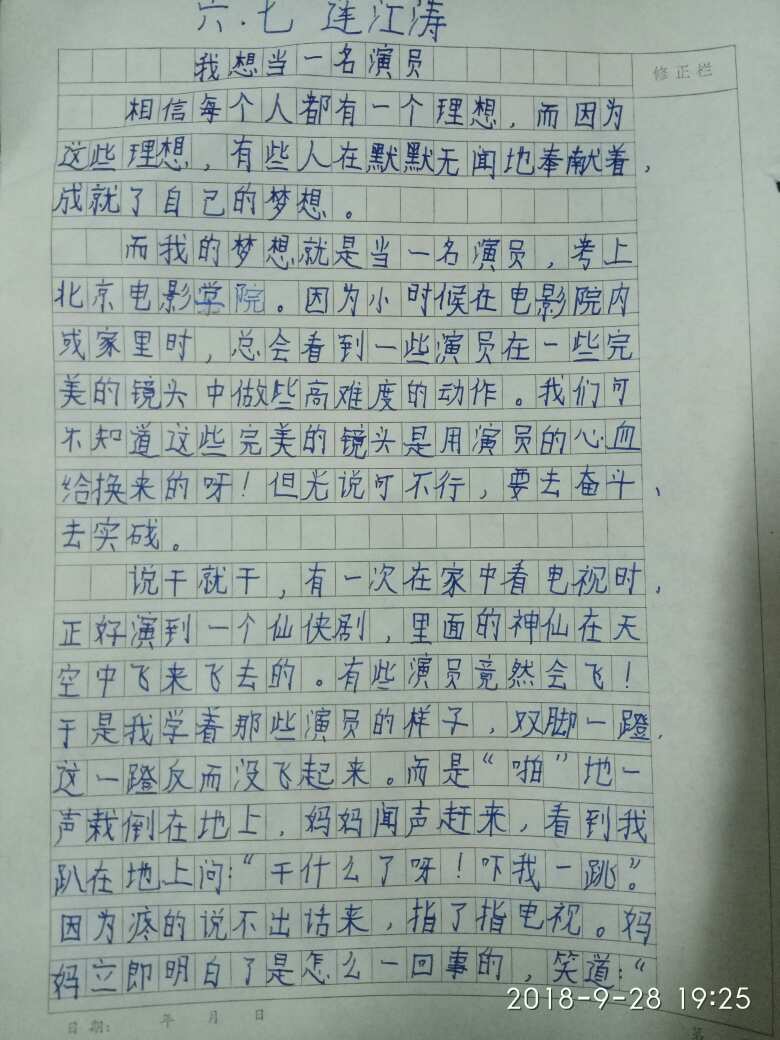 六.七 连江涛
我想当一名演员
修正栏
相信每个人都有一个理想，而因为
这些理想，有些人在默默无闻地奉献着，
成就了自己的梦想。
而我的梦想就是当一名演员，考上
北京电影学院。因为小时候在电影院内
或家里时，总会看到一些演员在一些完
美的镜头中做些高难度的动作。我们可
不知道这些完美的镜头是用演员的心血
给换来的呀！但光说可不行，要去奋斗、
去实战。
说干就干，有一次在家中看电视时，
正好演到一个仙侠剧，里面的神仙在天
空中飞来飞去的。有些演员竟然会飞！
于是我学着那些演员的样子，双脚一蹬，
这一蹬反而没飞起来。而是“啪”地一
声栽倒在地上，妈妈闻声赶来，看到我
趴在地上问：“干什么了呀！吓我一跳”。
因为疼的说不出话来，指了指电视。妈
妈立即明白了是怎么一回事的，笑道：“
日期： 年 月 日
第
2018-9-28 19:25